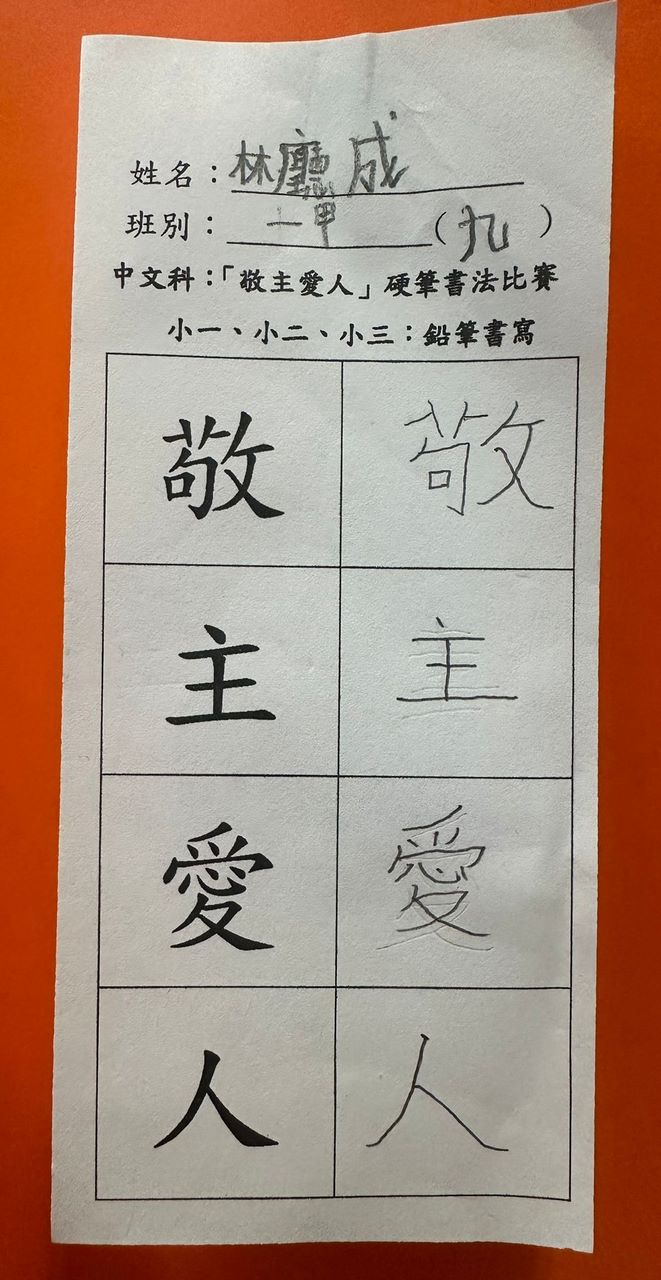 姓名：林廳成
班別：一甲（九）
中文科：「敬主愛人」硬筆書法比賽
小一、小二、小三：鉛筆書寫
敬 敬
主 主
愛 愛
人 人